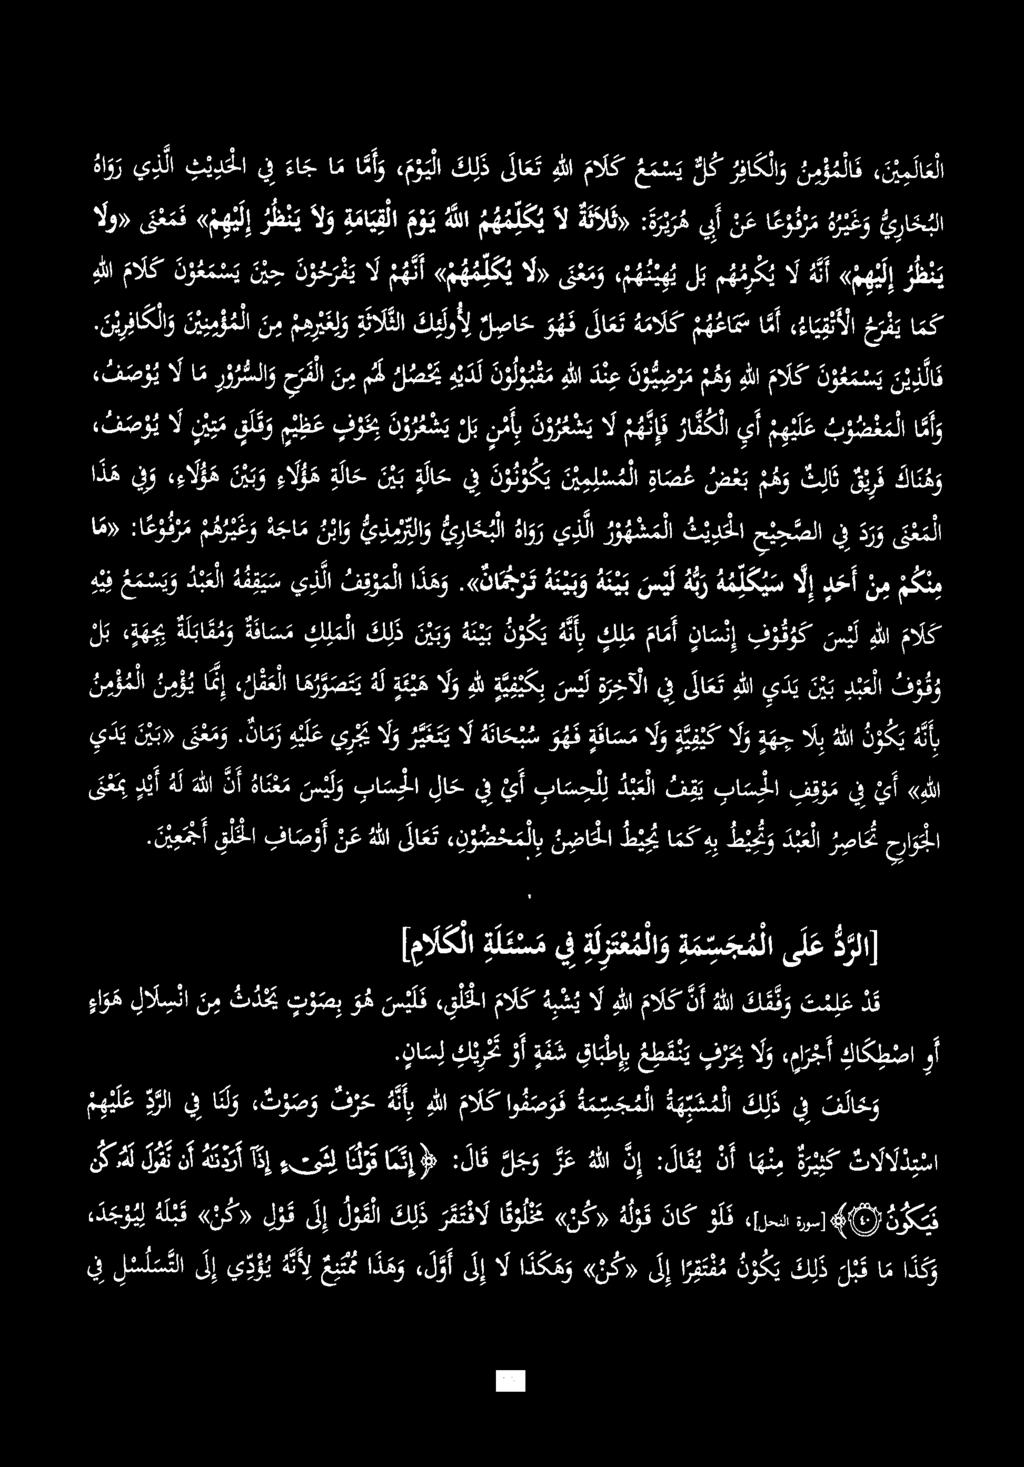 الْعَالَمِيْنَ، فَالْمُؤْمِنُ وَالْكَافِرُ كُلٌّ يَسْمَعُ كَلَامَ اللهِ تَعَالَى ذَلِكَ الْيَوْمَ، وَأَمَّا مَا جَاءَ فِي الْحَدِيْثِ الَّذِي رَوَاهُ
البُخَارِيُّ وَغَيْرُهُ مَرْفُوْعًا عَنْ أَبِي هُرَيْرَةَ: «ثَلَاثَةٌ لَا يُكَلِّمُهُمُ اللهُ يَوْمَ الْقِيَامَةِ وَلَا يَنْظُرُ إِلَيْهِمْ» فَمَعْنَى «ولَا
يَنْظُرُ إِلَيْهِمْ» أَنَّهُ لَا يُكْرِمُهُم بَل يُهِيْنُهُمْ، وَمَعْنَى «لَا يُكَلِّمُهُمْ» أَنَّهُمْ لَا يَفْرَحُوْنَ حِيْنَ يَسْمَعُوْنَ كَلَامَ اللهِ
كَمَا يَفْرَحُ الْأَتْقِيَاءُ، أَمَّا سَمَاعُهُمْ كَلَامَهُ تَعَالَى فَهُوَ حَاصِلٌ لِأُولَئِكَ الثَّلَاثَةِ وَلِغَيْرِهِمْ مِنَ الْمُؤْمِنِيْنَ وَالْكَافِرِيْنَ.
فَالَّذِيْنَ يَسْمَعُوْنَ كَلَامَ اللهِ وَهُمْ مَرْضِيُّوْنَ عِنْدَ اللهِ مَقْبُوْلُوْنَ لَدَيْهِ يَحْصُلُ لَهُم مِنَ الْفَرَحِ وَالسُّرُوْرِ مَا لَا يُوْصَفُ،
وَأَمَّا الْمَغْضُوْبُ عَلَيْهِمْ أَيِ الْكُفَّارُ فَإِنَّهُمْ لَا يَشْعُرُوْنَ بِأَمْنٍ بَلْ يَشْعُرُوْنَ بِخَوْفٍ عَظِيْمٍ وَقَلَقٍ مَتِيْنٍ لَا يُوْصَفُ،
وَهُنَاكَ فَرِيْقٌ ثَالِثٌ وَهُمْ بَعْضُ عُصَاةِ الْمُسْلِمِيْنَ يَكُوْنُوْنَ فِي حَالَةٍ بَيْنَ حَالَةِ هَؤُلَاءِ وَبَيْنَ هَؤُلَاءِ، وَفِي هَذَا
الْمَعْنَى وَرَدَ فِي الصَّحِيْحِ الْحَدِيْثُ الْمَشْهُوْرُ الَّذِي رَوَاهُ الْبُخَارِيُّ وَالتِّرْمِذِيُّ وَابْنُ مَاجَهْ وَغَيْرُهُمْ مَرْفُوْعًا: «مَا
مِنْكُمْ مِنْ أَحَدٍ إِلَّا سَيُكَلِّمُهُ رَبُّهُ لَيْسَ بَيْنَهُ وَبَيْنَهُ تَرْجُمَانٌ». وَهَذَا الْمَوْقِفُ الَّذِي سَيَقِفُهُ الْعَبْدُ وَيَسْمَعُ فِيْهِ
كَلَامَ اللهِ لَيْسَ كَوُقُوْفِ إِنْسَانٍ أَمَامَ مَلِكٍ بِأَنَّهُ يَكُوْنُ بَيْنَهُ وَبَيْنَ ذَلِكَ الْمَلِكِ مَسَافَةٌ وَمُقَابَلَةٌ بِجِهَةٍ، بَلْ
وُقُوْفُ الْعَبْدِ بَيْنَ يَدَيِ اللهِ تَعَالَى فِي الْآخِرَةِ لَيْسَ بِكَيْفِيَّةٍ لِلهِ وَلَا هَيْئَةٍ لَهُ يَتَصَوَّرُهَا الْعَقْلُ، إِنَّمَا يُؤْمِنُ الْمُؤْمِنُ
بِأَنَّهُ يَكُوْنُ اللهُ بِلَا جِهَةٍ وَلَا كَيْفِيَّةٍ وَلَا مَسَافَةٍ فَهُوَ سُبْحَانَهُ لَا يَتَغَيَّرُ وَلَا يَجْرِي عَلَيْهِ زَمَانٌ. وَمَعْنَى «بَيْنَ يَدَيِ
اللهِ» أَيْ فِي مَوْقِفِ الْحِسَابِ يَقِفُ الْعَبْدُ لِلْحِسَابِ أَيْ فِي حَالِ الْحِسَابِ وَلَيْسَ مَعْنَاهُ أَنَّ اللهَ لَهُ أَيْدٍ بِمَعْنَى
الْجَوَارِحِ تُحَاصِرُ الْعَبْدَ وَتُحِيْطُ بِهِ كَمَا يُحِيْطُ الْحَاضِنُ بِالْمَحْضُوْنِ، تَعَالَى اللهُ عَنْ أَوْصَافِ الْخَلْقِ أَجْمَعِيْنَ.
[الرَّدُّ عَلَى الْمُجَسِّمَةِ وَالْمُعْتَزِلَةِ فِي مَسْئَلَةِ الْكَلَامِ]
قَدْ عَلِمْتَ وَفَّقَكَ اللهُ أَنَّ كَلَامَ اللهِ لَا يُشْبِهُ كَلَامَ الْخَلْقِ، فَلَيْسَ هُوَ بِصَوْتٍ يَحْدُثُ مِنَ انْسِلَالِ هَوَاءٍ
أَوِ اصْطِكَاكِ أَجْرَامٍ، وَلَا بِحَرْفٍ يَنْقَطِعُ بِإِطْبَاقِ شَفَةٍ أَوْ تَحْرِيْكِ لِسَانٍ.
وَخَالَفَ فِي ذَلِكَ الْمُشَبِّهَةُ الْمُجَسِّمَةُ فَوَصَفُوا كَلَامَ اللهِ بِأَنَّهُ حَرْفٌ وَصَوْتٌ، وَلَنَا فِي الرَّدِّ عَلَيْهِمْ
اسْتِدْلَالَاتٌ كَثِيْرَةٌ مِنْهَا أَنْ يُقَالَ: إِنَّ اللهَ عَزَّ وَجَلَّ قَالَ: ﴿إِنَّمَا قَوْلُنَا لِشَىْءٍ إِذَآ أَرَدْنَـٰهُ أَن نَّقُولَ لَهُۥ كُن
فَيَكُونُ ٤٠﴾ [سورة النحل]، فَلَوْ كَانَ قَوْلُهُ «كُنْ» مَخْلُوْقًا لَافْتَقَرَ ذَلِكَ الْقَوْلُ إِلَى قَوْلِ «كُنْ» قَبْلَهُ لِيُوْجَدَ،
وَكَذَا مَا قَبْلَ ذَلِكَ يَكُوْنُ مُفْتَقِرًا إِلَى «كُنْ» وَهَكَذَا لَا إِلَى أَوَّلَ، وَهَذَا مُمْتَنِعٌ لِأَنَّهُ يُؤَدِّي إِلَى التَّسَلْسُلِ فِي